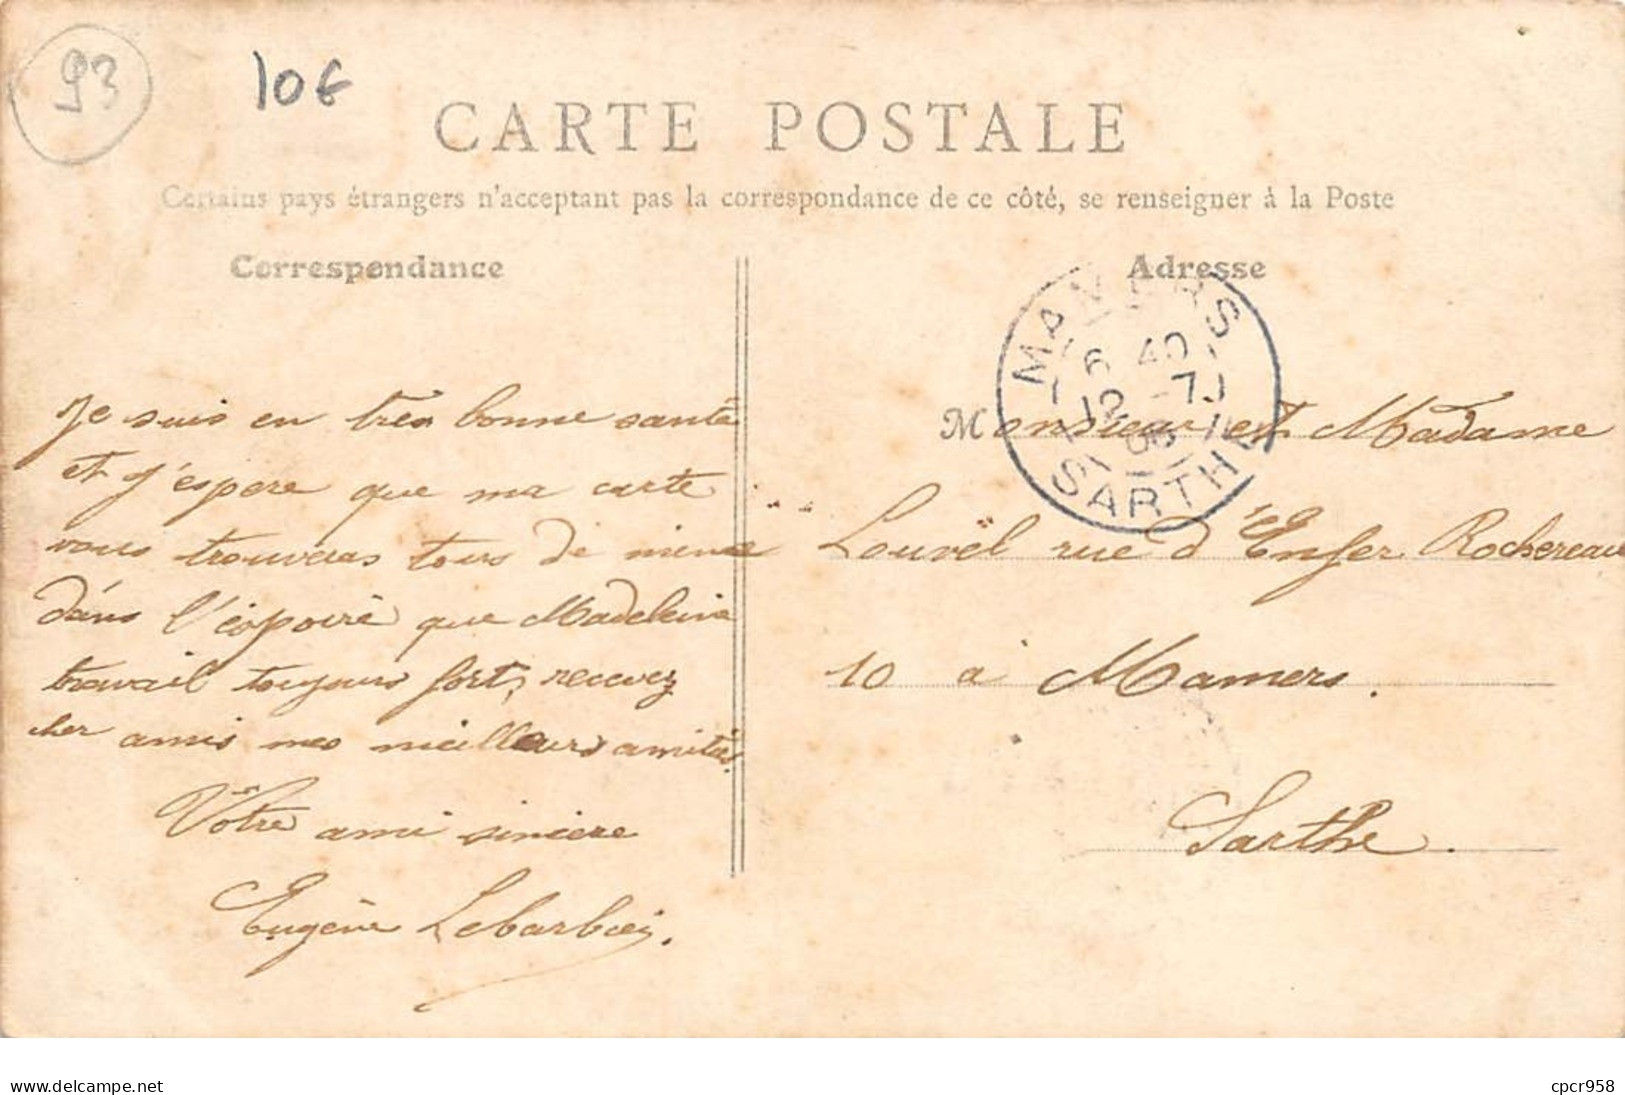 93
10€
CARTE POSTALE
Certains pays étrangers n'acceptant pas la correspondance de ce côté, se renseigner à la Poste
Correspondance
Adresse
MAMERS
6 40
12 -7
06
SARTHE
Je suis en très bonne santé
et j'éspere que ma carte
vous trouveras tous de même
dans l'éspoire que Madeleine
travail toujours fort, recevez
cher amis mes meilleurs amitiés.
Vôtre ami sincere
Eugène
Monsieur et Madame
Louvel rue d'Enfer Rochereau
10 à Mamers.
Sarthe.
www.delcampe.net
cpcr958